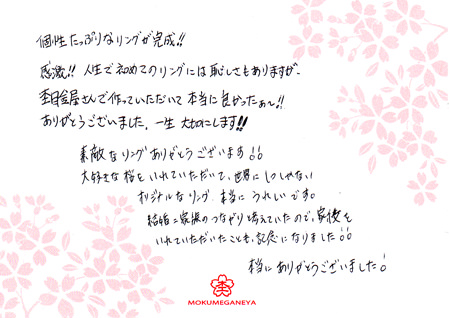 個性たっぷりなリングが完成!!
感激!! 人生で初めてのリングには恥しさもありますが、
杢目金屋さんで作っていただいて本当に良かったぁ〜!!
ありがとうございました。一生 大切にします!!
素敵なリングありがとうございます!!
大好きな桜をいれていただいて、世界に1つしかない
オリジナルなリング、本当に うれしいです。
結婚=家族のつながりと考えていたので、家便を
いれていただいたことも、記念になりました!!
本当にありがとうございました!
MOKUMEGANEYA